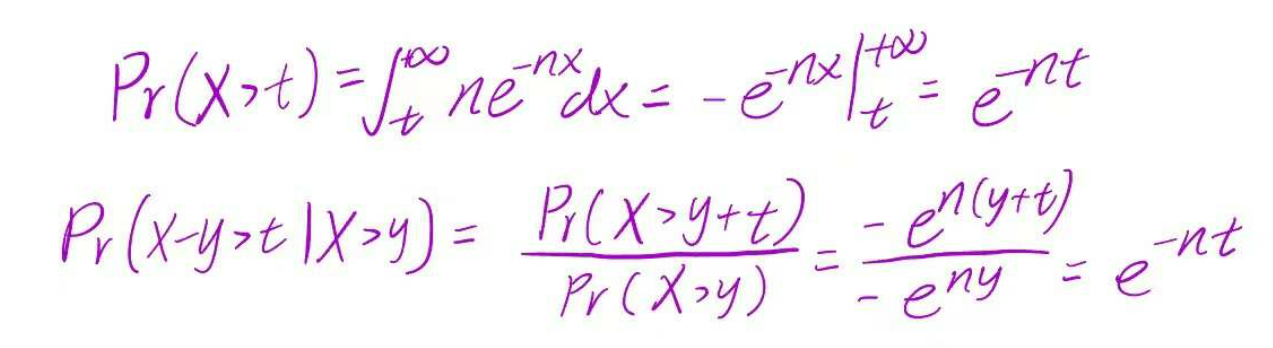 Pr(X>t) = ∫_t^{+∞} ne^{-nx}dx = -e^{-nx}|_t^{+∞} = e^{-nt}
Pr(X-y>t|X>y) = \frac{Pr(X>y+t)}{Pr(X>y)} = \frac{-e^{n(y+t)}}{-e^{ny}} = e^{-nt}